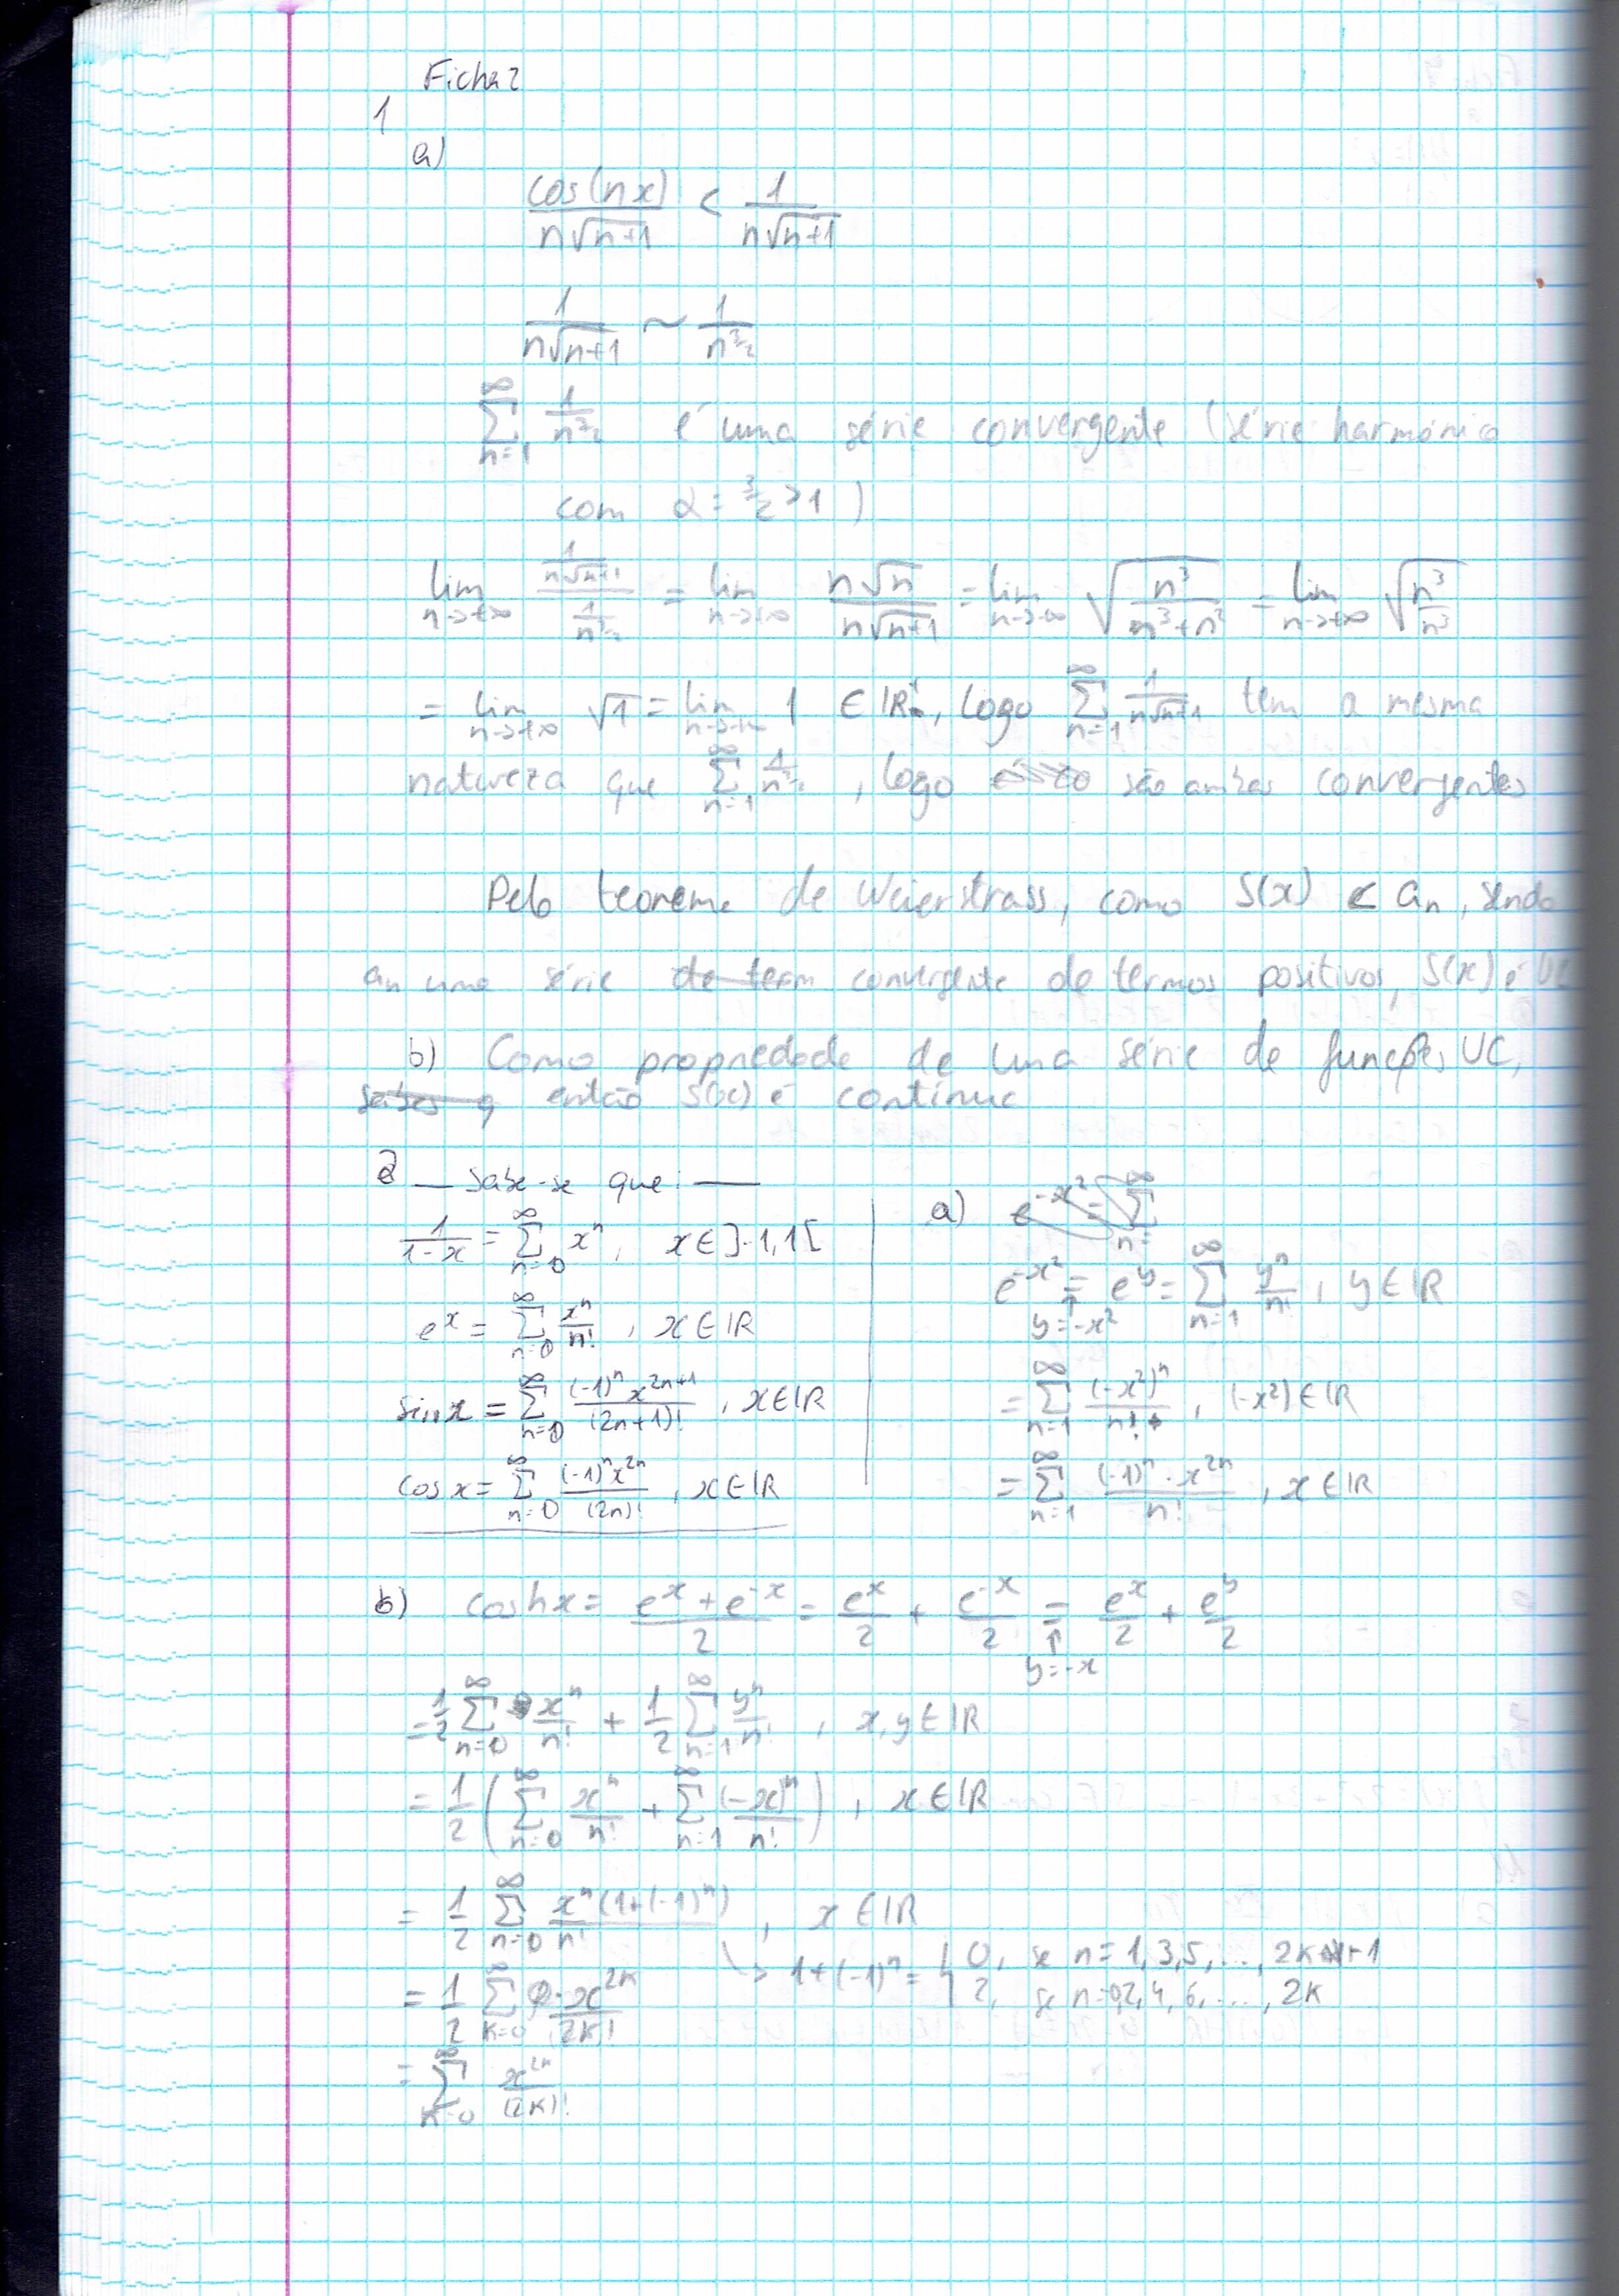 Ficha 2
1
a)
cos(nx)/(n√(n+1)) < 1/(n√(n+1))
1/(n√(n+1)) ~ 1/n^(3/2)
∑_{n=1}^{∞} 1/n^(3/2) é uma série convergente (série harmónica
com α = 3/2 > 1)
lim_{n→+∞} (1/(n√(n+1)))/(1/n^(3/2)) = lim_{n→+∞} (n√n)/(n√(n+1)) = lim_{n→+∞} √(n³/(n³+n²)) = lim_{n→+∞} √(n³/n³)
= lim_{n→+∞} √1 = lim_{n→+∞} 1 ∈ ℝ⁺, logo ∑_{n=1}^{∞} 1/(n√(n+1)) tem a mesma
natureza que ∑_{n=1}^{∞} 1/n^(3/2), logo são ambas convergentes
Pelo teorema de Weierstrass, como S(x) < aₙ, sendo
aₙ uma série convergente de termos positivos, S(x) é UC
b) Como propriedade de uma série de funções UC,
então S(x) é contínua
2 — Sabe-se que: —
1/(1-x) = ∑_{n=0}^{∞} xⁿ, x ∈ ]-1,1[
eˣ = ∑_{n=0}^{∞} xⁿ/n!, x ∈ ℝ
sin x = ∑_{n=0}^{∞} (-1)ⁿ x^(2n+1)/(2n+1)!, x ∈ ℝ
cos x = ∑_{n=0}^{∞} (-1)ⁿ x^(2n)/(2n)!, x ∈ ℝ
a) e^(-x²) = ∑_{n=}^{∞}
e^(-x²) = e^y = ∑_{n=1}^{∞} yⁿ/n!, y ∈ ℝ
↑
y = -x²
= ∑_{n=1}^{∞} (-x²)ⁿ/n!, (-x²) ∈ ℝ
= ∑_{n=1}^{∞} (-1)ⁿ · x^(2n)/n!, x ∈ ℝ
b) cosh x = (eˣ + e^(-x))/2 = eˣ/2 + e^(-x)/2 = eˣ/2 + e^y/2
↑
y = -x
= 1/2 ∑_{n=0}^{∞} xⁿ/n! + 1/2 ∑_{n=1}^{∞} yⁿ/n!, x, y ∈ ℝ
= 1/2 (∑_{n=0}^{∞} xⁿ/n! + ∑_{n=1}^{∞} (-x)ⁿ/n!), x ∈ ℝ
= 1/2 ∑_{n=0}^{∞} xⁿ(1+(-1)ⁿ)/n!, x ∈ ℝ
↳ 1+(-1)ⁿ = { 0, se n = 1,3,5,..., 2k+1
2, se n = 0,2,4,6,..., 2k
= 1/2 ∑_{k=0}^{∞} 2·x^(2k)/2k!
= ∑_{k=0}^{∞} x^(2k)/(2k)!